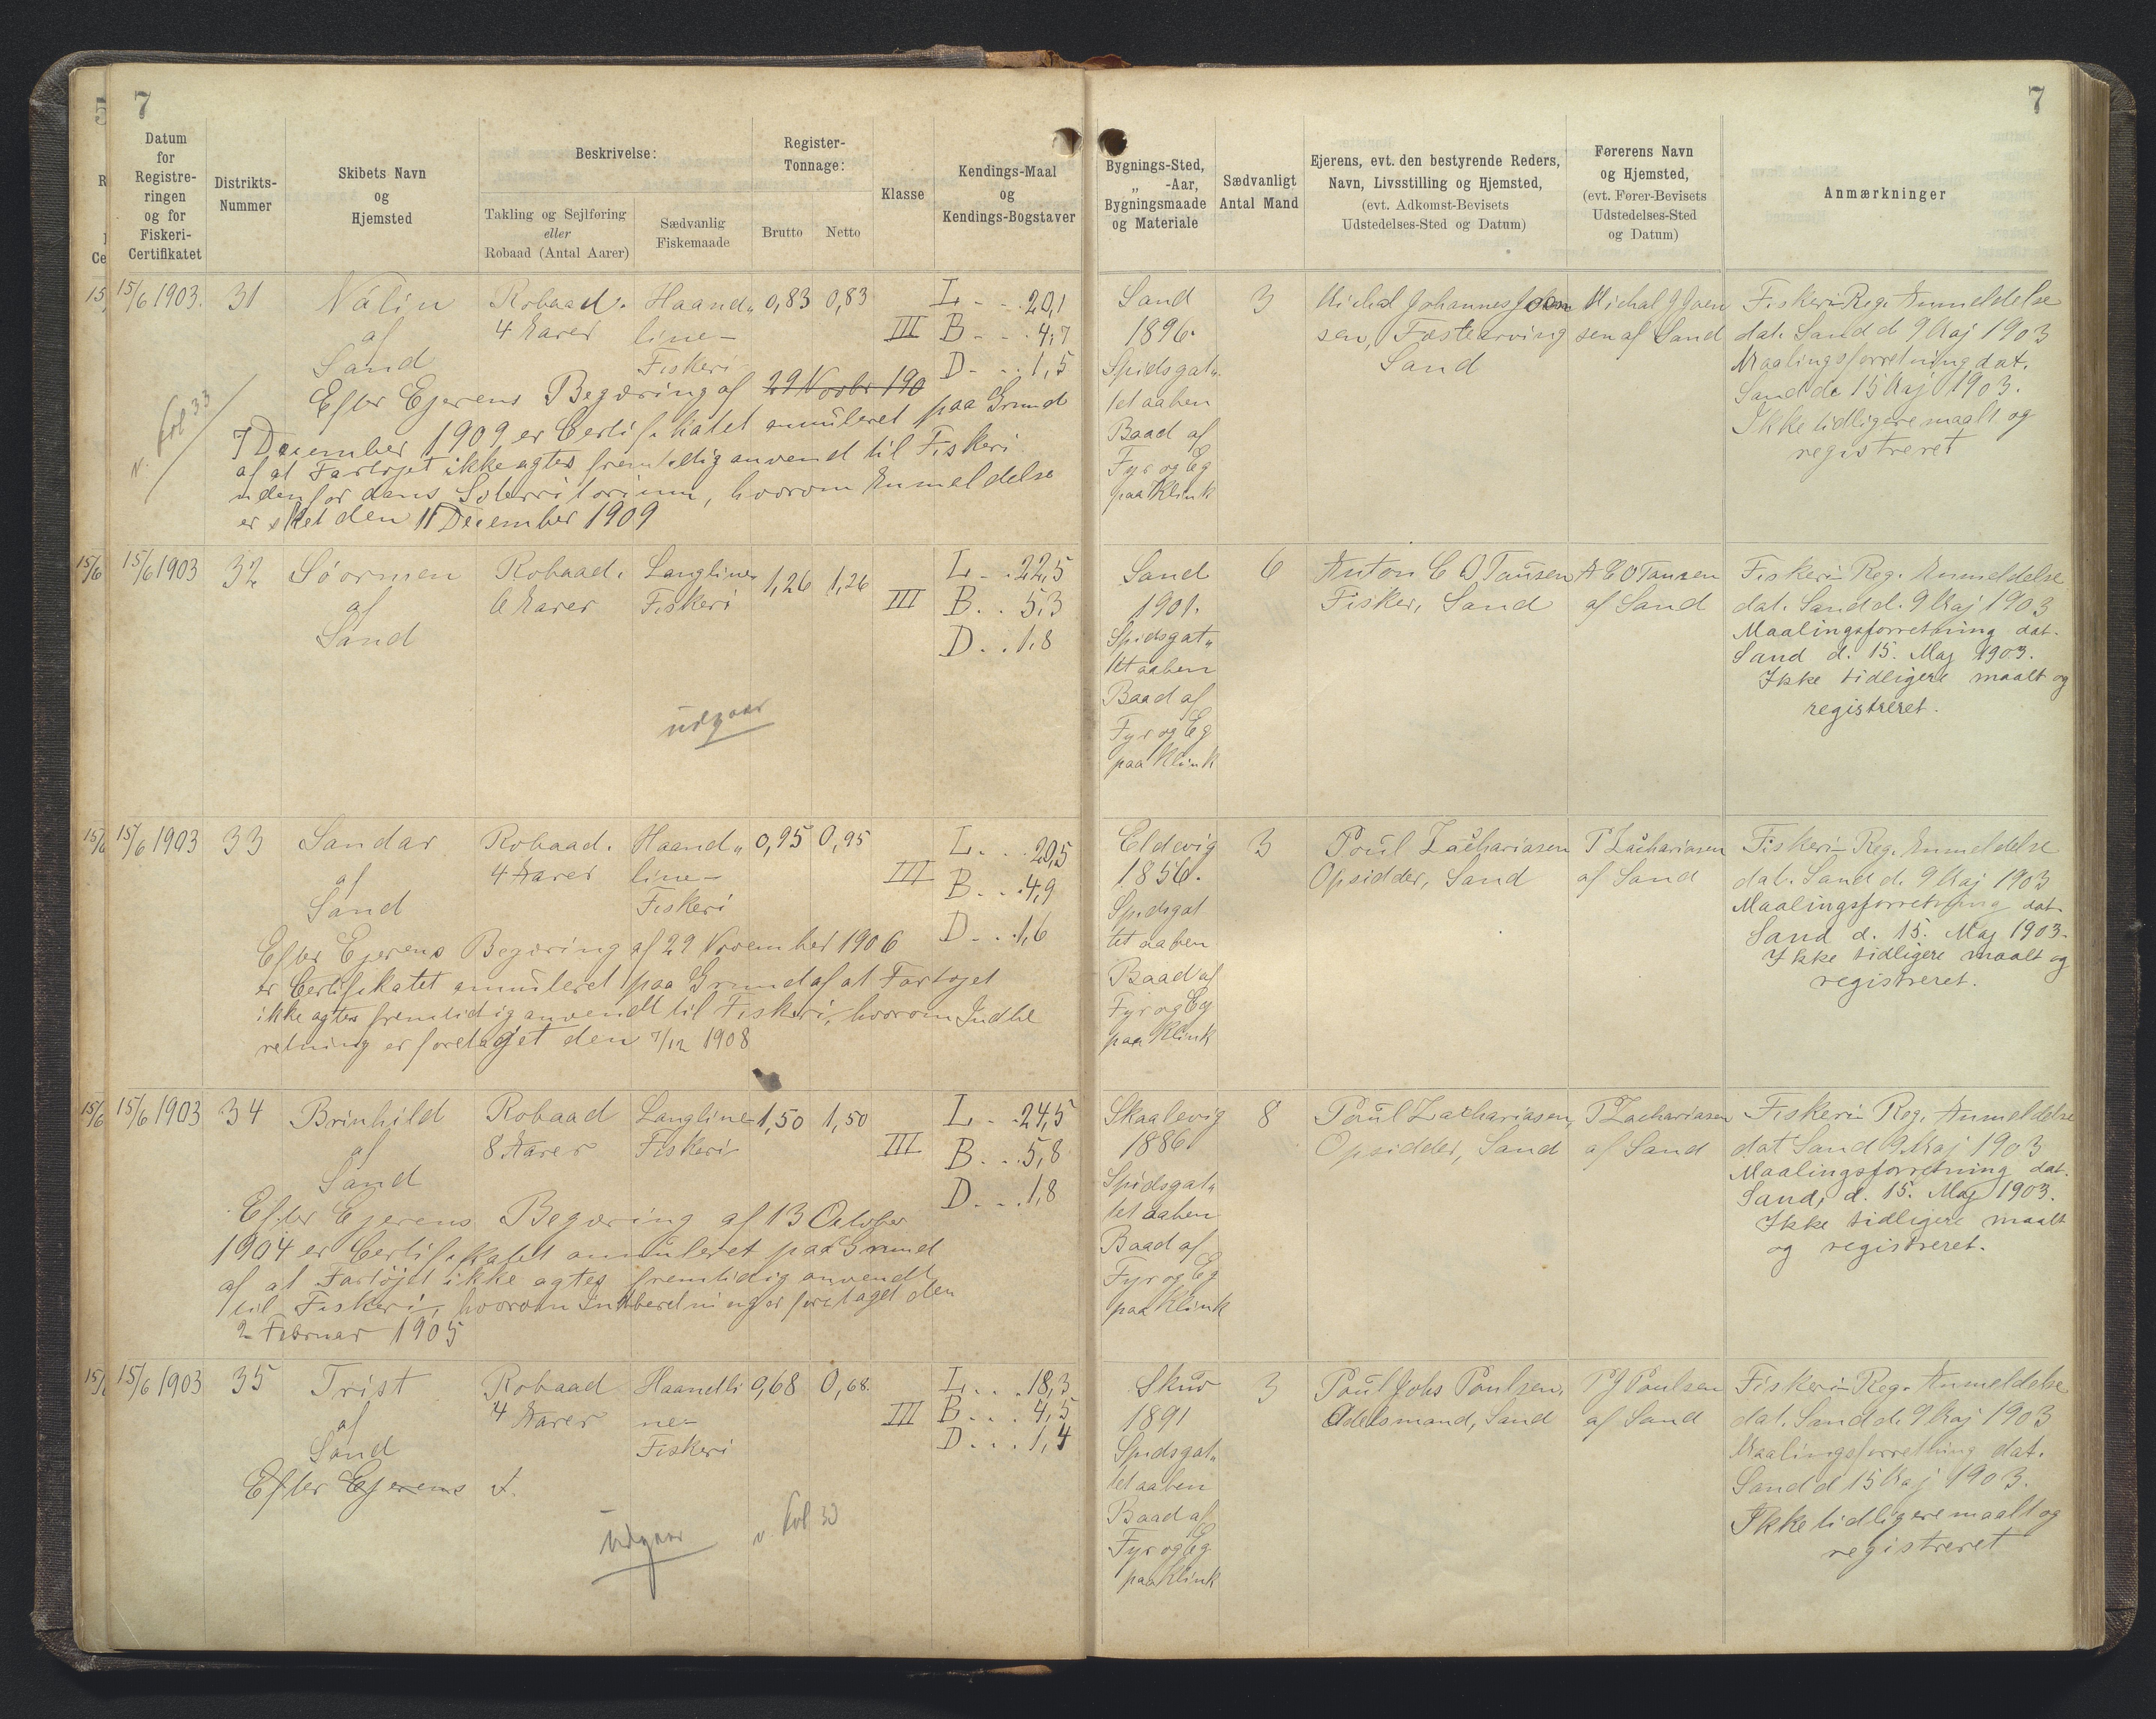 7
7
5
Datum
for
Registre-
ringen
og for
Fiskeri-
Certifikatet
Distrikts-
Nummer
Skibets Navn
og
Hjemsted
Beskrivelse:
Takling og Sejlføring
eller
Robaad (Antal Aarer)
Sædvanlig
Fiskemaade
Register-
Tonnage:
Brutto
Netto
Klasse
Kendings-Maal
og
Kendings-Bogstaver
Bygnings-Sted,
„ -Aar,
Bygningsmaade
og Materiale
Sædvanligt
Antal Mand
Ejerens, evt. den bestyrende Reders,
Navn, Livsstilling og Hjemsted,
(evt. Adkomst-Bevisets
Udstedelses-Sted og Datum)
Førerens Navn
og Hjemsted,
(evt. Fører-Bevisets
Udstedelses-Sted
og Datum)
Anmærkninger
15/6 1903.
31
Nálin
af
Sand
Robaad.
4 Aarer
Haand„
line-
Fiskeri
0,83
0,83
III
L - - . 20,1
B - - . 4,7
D - . . 1,5
Sand
1896.
Spidsgat„
tet aaben
Baad af
Fyr og Eg
paa Klink
3
Michal Johannes Joen
sen, Fæsteårving
Sand
Michal J Joen
sen af Sand
Fiskeri-Reg. Anmeldelse
dat. Sand d 9 Maj 1903
Maalingsforretning dat.
Sand de 15 Maj 1903.
Ikke tidligere maalt og
registreret
Efter Ejerens Begæring af 29 Novbr 190
7 December 1909, er Certifikatet annuleret paa Grund
af at Fartøjet ikke agtes fremtidig anvendt til Fiskeri
udenfor dans Søterritorium, hvorom Anmeldelse
er sket den 11 December 1909
v. fol 33
15/6 1903
32
Sóormen
af
Sand
Robaad.
6 Aarer
Langline-
Fiskeri
1,26
1,26
III
L - . . 22,5
B . . 5,3
D . . 1,8
Sand
1901.
Spidsgat„
tet aaben
Baad af
Fyr og Eg
paa Klink
6
Anton C D Tausen
Fisker, Sand
A C D Tausen
af Sand
Fiskeri-Reg. Anmeldelse
dat. Sand d. 9 Maj 1903
Maalingsforretning dat.
Sand d. 15. Maj 1903.
Ikke tidligere maalt og
registreret.
udgaar
15/6 1903
33
Sandar
af
Sand
Robaad.
4 Aarer
Haand„
line-
Fiskeri
0,95
0,95
III
L . . . 20,5
B . . . 4,9
D . . . 1,6
Eldevig
1856.
Spidsgat
tet aaben
Baad af
Fyr og Eg
paa Klink
3
Poul Zachariasen
Opsidder, Sand
P Zachariasen
af Sand
Fiskeri-Reg. Anmeldelse
dat. Sand d. 9 Maj 1903
Maalingsforretning dat.
Sand d. 15. Maj 1903.
Ikke tidligere maalt og
registreret.
Efter Ejerens Begæring af 29 November 1906
er Certifikatet annuleret paa Grund af at Fartøjet
ikke agtes fremtidig anvendt til Fiskeri, hvorom Indbe
retning er foretaget den 7/12 1908
15/6 1903
34
Brinhild
af
Sand
Robaad
8 Aarer
Langline-
Fiskeri
1,50
1,50
III
L - . . 24,5
B . . . 5,8
D . . . 1,8
Skaalevig
1886.
Spidsgat„
tet aaben
Baad af
Fyr og Eg
paa Klink
8
Poul Zachariasen,
Opsidder, Sand
P Zachariasen
af Sand
Fiskeri-Reg. Anmeldelse
dat Sand 9. Maj 1903
Maalingsforretning dat.
Sand, d. 15. Maj 1903.
Ikke tidligere maalt
og registreret.
Efter Ejerens Begæring af 13 October
1904 er Certifikatet annuleret paa Grund
af at Fartøjet ikke agtes fremtidig anvendt
til Fiskeri, hvorom Indberetning er foretaget den
2 Februar 1905
15/6 1903
35
Trist
af
Sand
Robaad
4 Aarer
Haandli
ne-
Fiskeri
0,68
0,68.
III
L . . . 18,3
B . . . 4,5
D . . . 1,4
Skúv
1891
Spidsgat„
tet aaben
Baad af
Fyr og Eg
paa Klink
3
Poul Johs Poulsen,
Odelsmand, Sand
P J Poulsen
af Sand
Fiskeri-Reg. Anmeldelse
dat. Sand d. 9 Maj 1903
Maalingsforretning dat.
Sand d 15 Maj 1903.
Ikke tidligere maalt og
registreret
Efter Ejerens
udgaar
v. fol 30